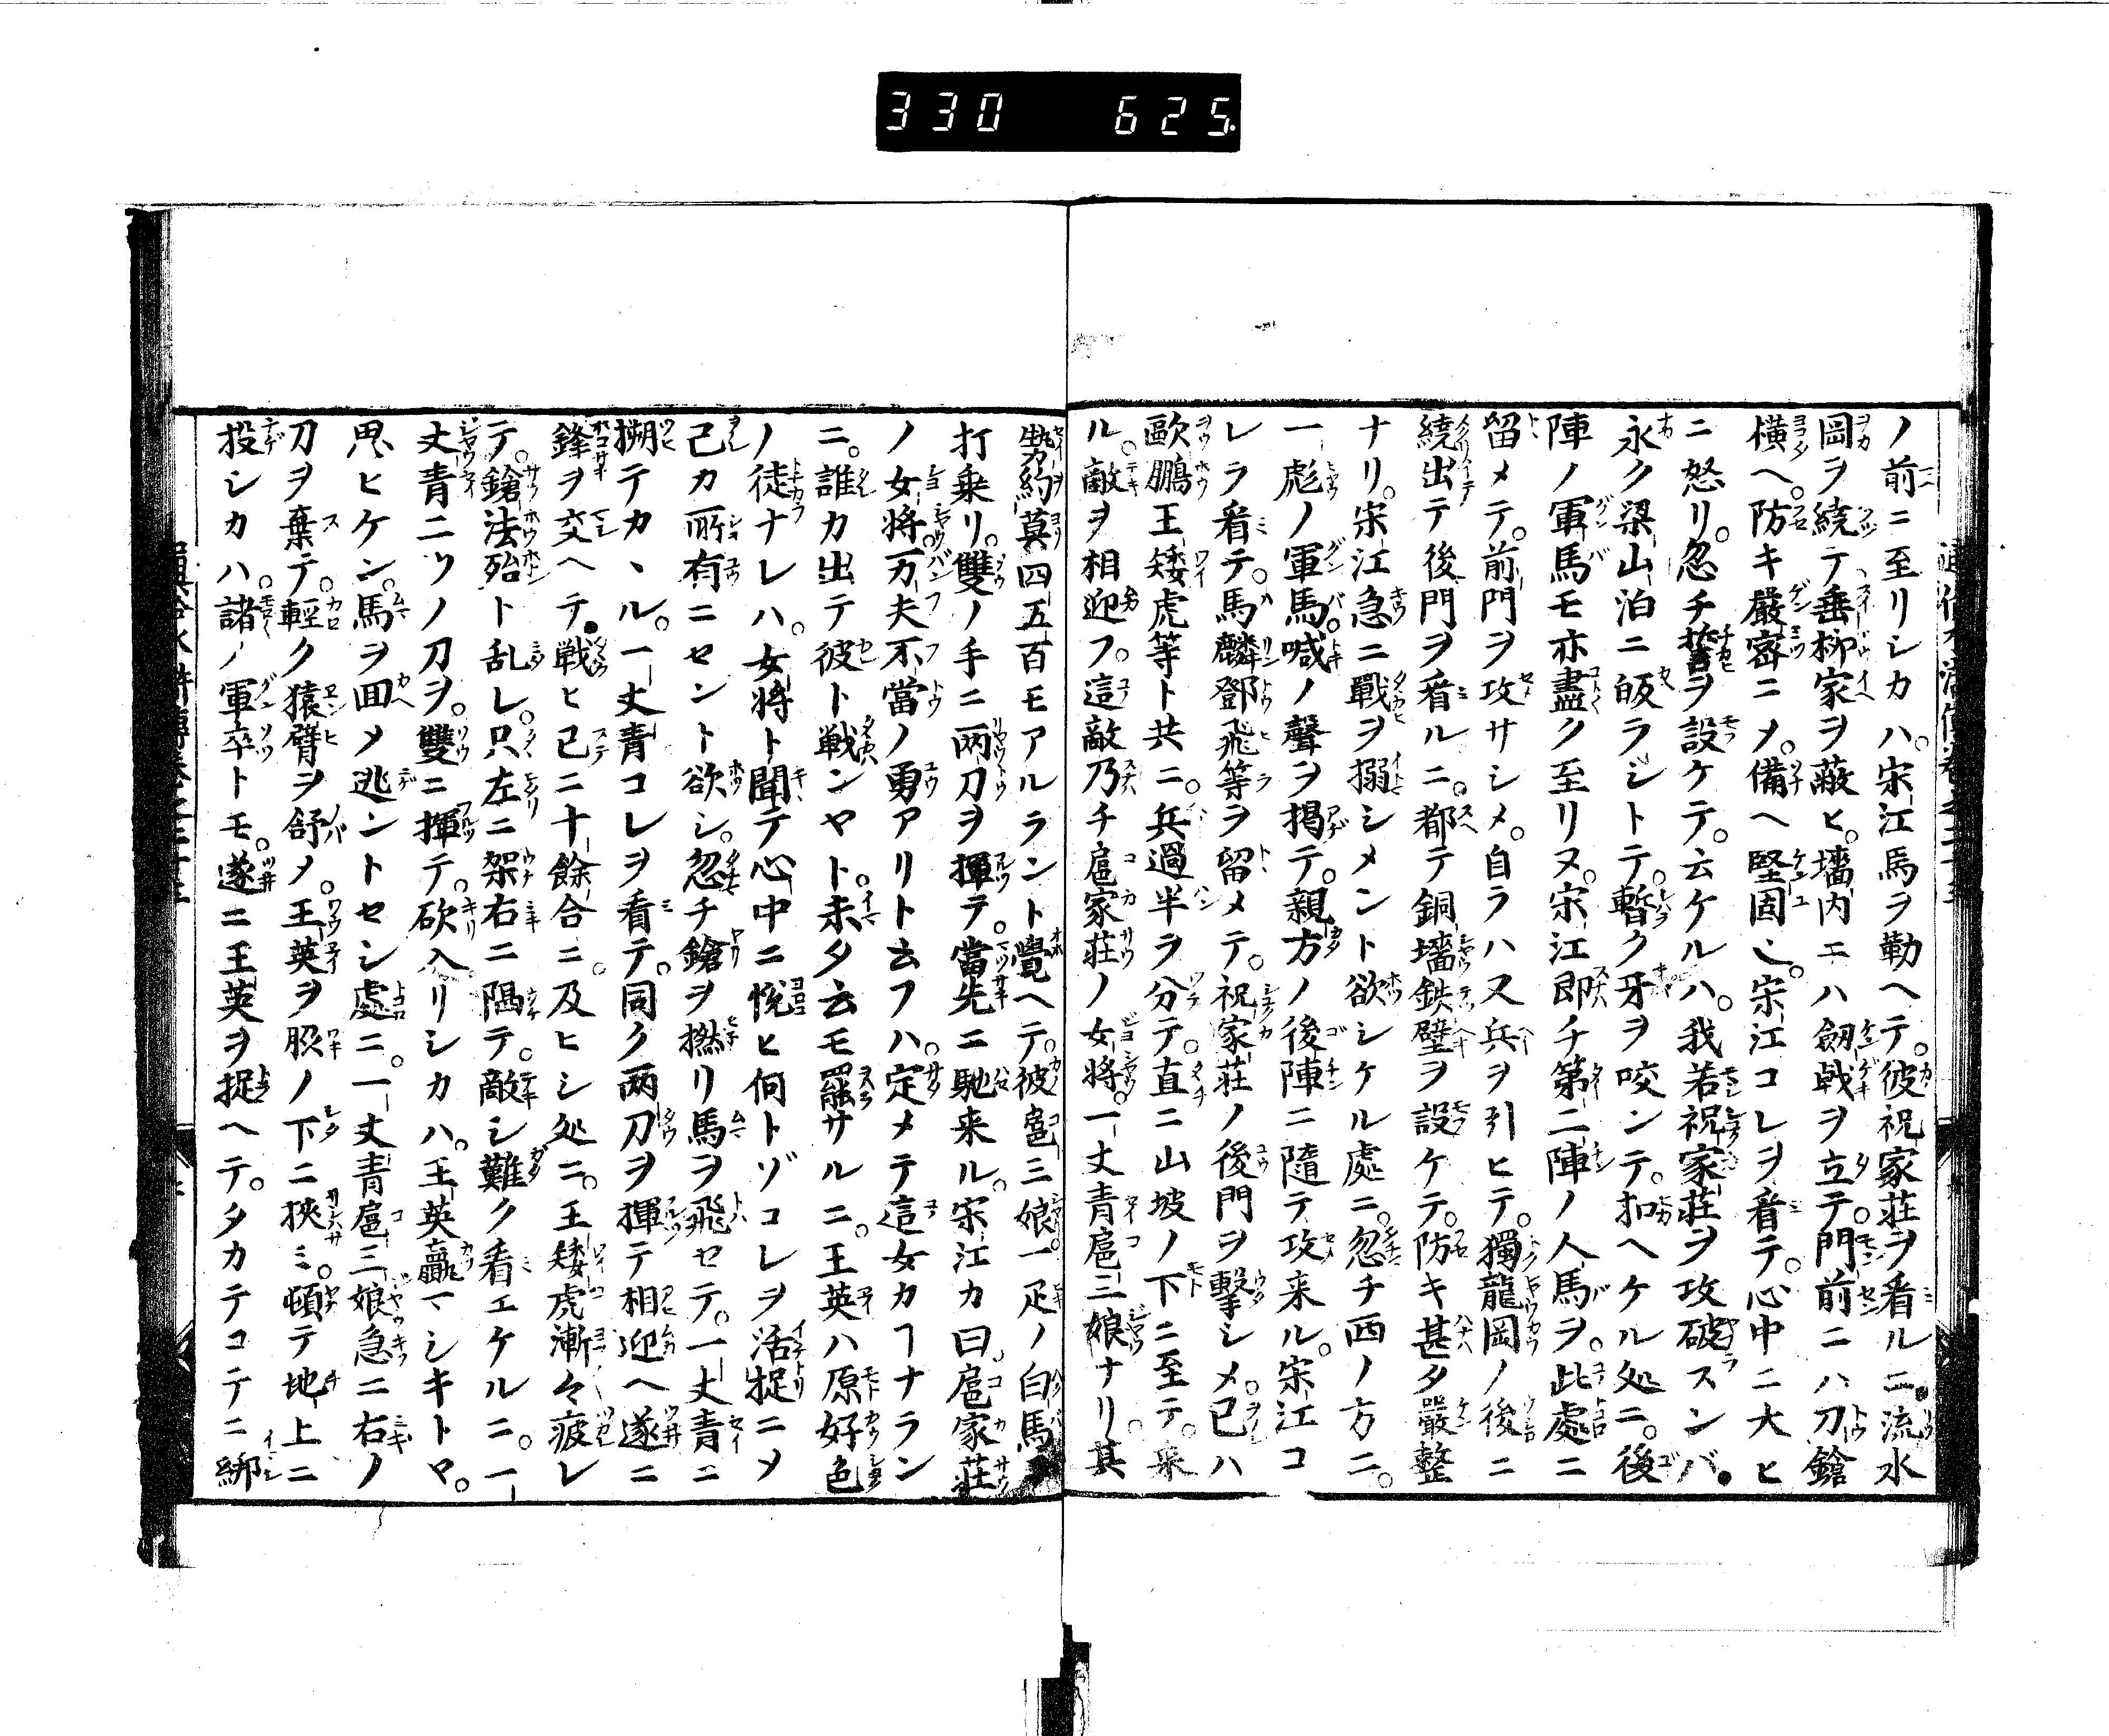 330 625
ノ前ニ至リシカハ。宋江馬ヲ勒ヘテ。彼祝家荘ヲ看ルニ。流水
岡ヲ繞テ垂栁家ヲ蔽ヒ。墻内エハ劔戟ヲ立テ。門前ニハ刀鎗
横ヘ。防キ嚴密ニメ。備ヘ堅固也。宋江コレヲ看テ。心中ニ大ヒ
ニ怒リ。忽チ誓ヲ設ケテ。云ケルハ。我若祝家荘ヲ攻破スンバ。
永ク梁山泊ニ皈ラジトテ。暫ク牙ヲ咬ンテ。扣ヘケル処ニ。後
陣ノ軍馬モ亦盡ク至リヌ。宋江即チ第二陣ノ人馬ヲ。此處ニ
留メテ。前門ヲ攻サシメ。自ラハ又兵ヲ引ヒテ。獨龍岡ノ後ニ
繞出テ後門ヲ看ルニ。都テ銅墻鉄壁ヲ設ケテ。防キ甚タ嚴整
ナリ。宋江急ニ戰ヲ搦シメント欲シケル處ニ。忽チ西ノ方ニ。
一彪ノ軍馬。喊ノ聲ヲ掲テ。親方ノ後陣ニ隨テ攻来ル。宋江コ
レラ看テ。馬麟鄧飛等ヲ留メテ。祝家荘ノ後門ヲ擊シメ。已ハ
歐鵬王矮虎等ト共ニ。兵過半ヲ分テ。直ニ山坡ノ下ニ至テ。来
ル。敵ヲ相迎フ。這敵乃チ扈家荘ノ女將。一丈青扈三娘ナリ。其
勢約莫四五百モアルラント覺ヘテ。彼扈三娘。一疋ノ白馬ニ
打乗リ。雙ノ手ニ両刀ヲ揮テ。當先ニ馳来ル。宋江カ曰。扈家荘
ノ女將。万夫不當ノ勇アリト云フハ。定メテ這女カヿナラン
ニ。誰カ出テ彼ト戦ンヤト。未タ云モ罷サルニ。王英ハ原好色
ノ徒ナレハ。女將ト聞テ心中ニ悅ヒ何トゾコレヲ活捉ニメ
己カ所有ニセント欲シ。忽チ鎗ヲ撚リ馬ヲ飛セテ。一丈青ニ
搠テカヽル。一丈青コレヲ看テ。同ク両刀ヲ揮テ相迎ヘ遂ニ
鋒ヲ交ヘテ。戦ヒ已ニ十餘合ニ。及ヒシ処ニ。王矮虎漸々疲レ
テ。鎗法殆ト乱レ。只左ニ架右ニ隔テ。敵シ難ク看エケルニ。一
丈青二ツノ刀ヲ。雙ニ揮テ。砍入リシカハ。王英贏マシキトヤ。
思ヒケン。馬ヲ囬メ逃ントセシ處ニ。一丈青扈三娘急ニ右ノ
刀ヲ棄テ。輕ク猿臂ヲ舒メ。王英ヲ腋ノ下ニ挾ミ。頓テ地上ニ
投シカハ。諸ノ軍卒トモ。遂ニ王英ヲ捉ヘテ。タカテコテニ綁